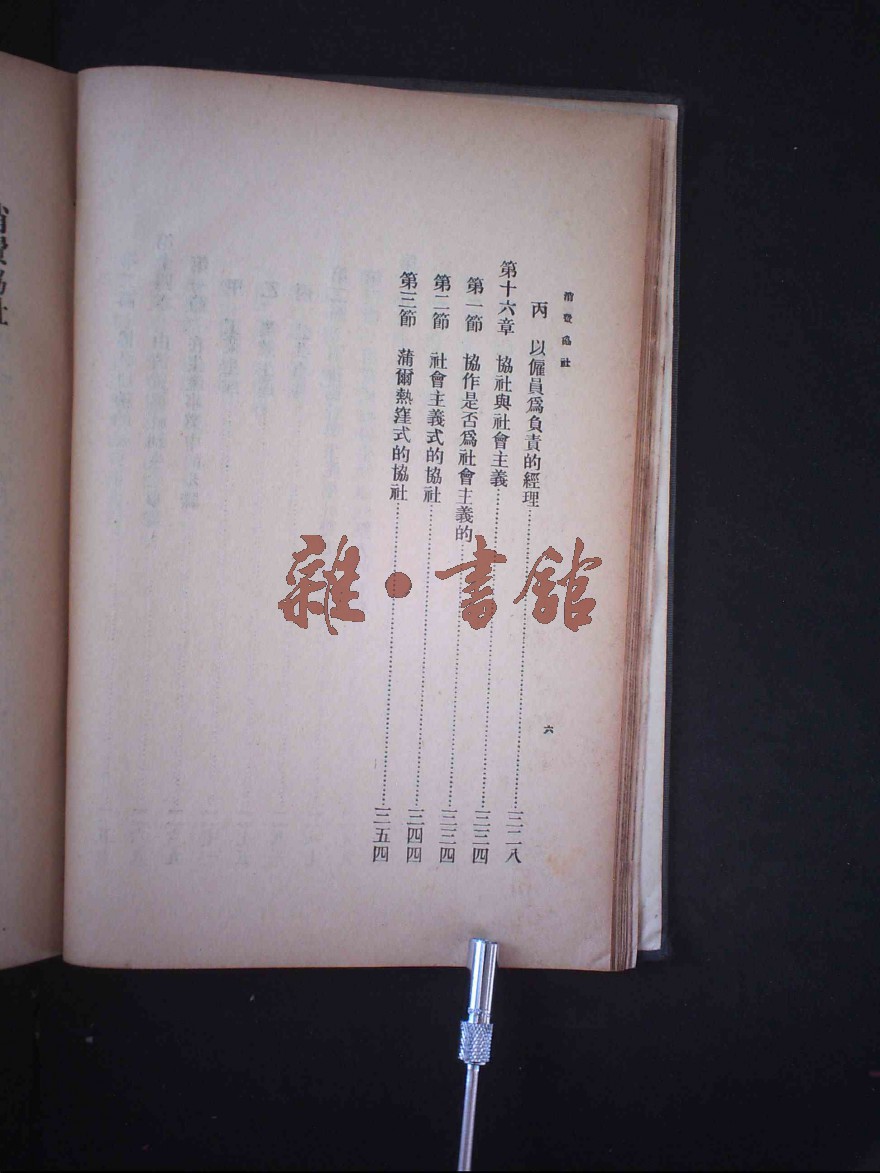 消費協社
六
丙 以僱員爲負責的經理……三二八
第十六章 協社與社會主義……三三四
第一節 協作是否爲社會主義的……三三四
第二節 社會主義式的協社……三四四
第三節 蒲爾熱窪式的協社……三五四
雜·書館